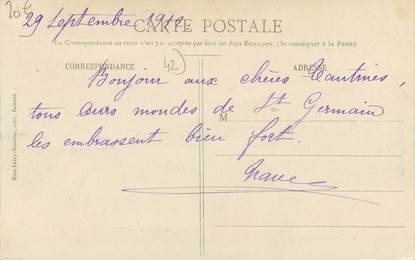 20 €
29 Septembre 1912
CARTE POSTALE
La Correspondance au recto n'est pas acceptée par tous les Pays Etrangers. (Se renseigner à la Poste).
CORRESPONDANCE
42
ADRESSE
Bonjour aux chères Tantines,
tous ceurs mondes de St Germain
M
les embrassent bien fort.